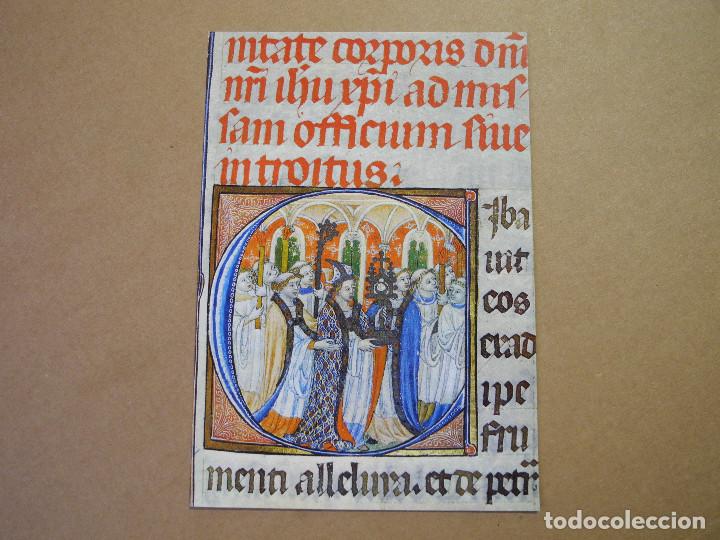 nitate corporis dñi
nr̄i ihu xp̄i ad mis-
sam officium siue
introitus.
Jba
uit
eos
erad
ipe
fru
menti alleluia. et de petr̄
todocoleccion